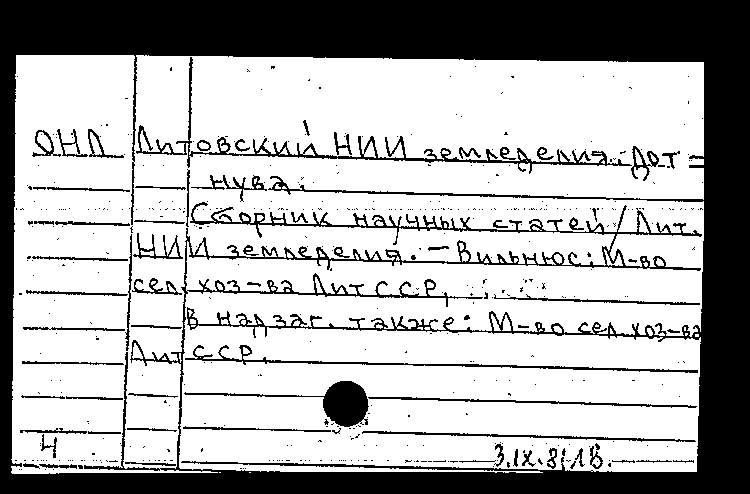 ОНЛ Литовский НИИ земледелия. Дот=
нува.
Сборник научных статей / Лит.
НИИ земледелия. — Вильнюс: М-во
сел. хоз-ва ЛитССР,
В надзаг. также: М-во сел. хоз-ва
ЛитССР.
Ч 3.IX.81